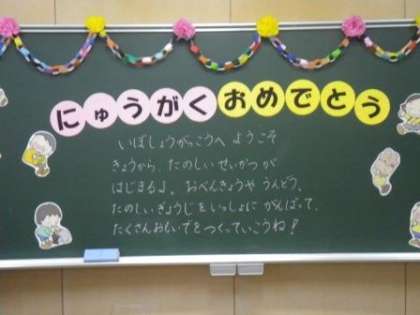 にゅうがくおめでとう
いぼしょうがっこうへ ようこそ
きょうから、たのしい せいかつ が
はじまるよ。おべんきょうや うんどう、
たのしいぎょうじを いっしょに がんばって、
たくさんおもいでをつくっていこうね!